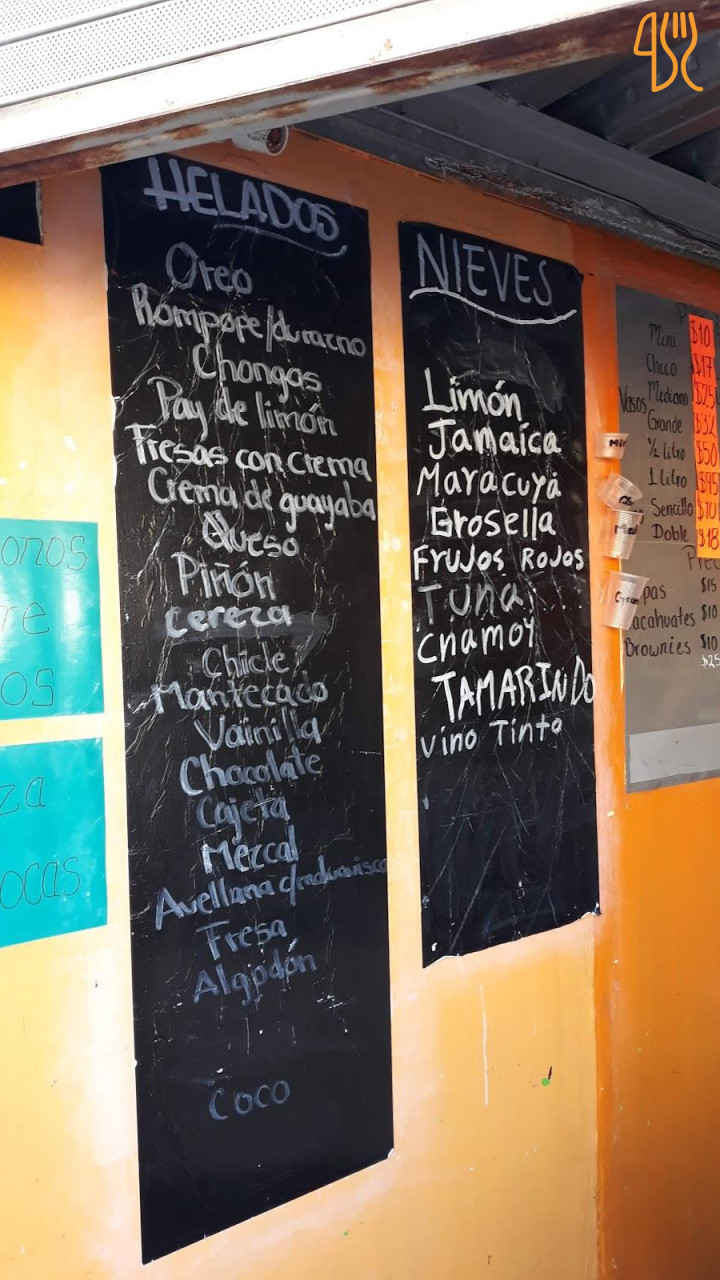 HELADOS
Oreo
Rompope/durazno
Chongos
Pay de limón
Fresas con crema
Crema de guayaba
Queso
Piñón
cereza
Chicle
Mantecado
Vainilla
Chocolate
Cajeta
Mezcal
Avellana c/malvavisco
Fresa
Algodón
Coco
NIEVES
Limón
Jamaica
Maracuyá
Grosella
Frujos Rojos
Tuna
chamoy
TAMARINDO
Vino Tinto
Mini $10
Chico $17
Vasos Mediano $25
Grande $32
½ litro $50
1 litro $95
Sencillo $10
Doble $18
$15
acahuates $10
Brownies $10
$25
onos
re
os
za
ocas